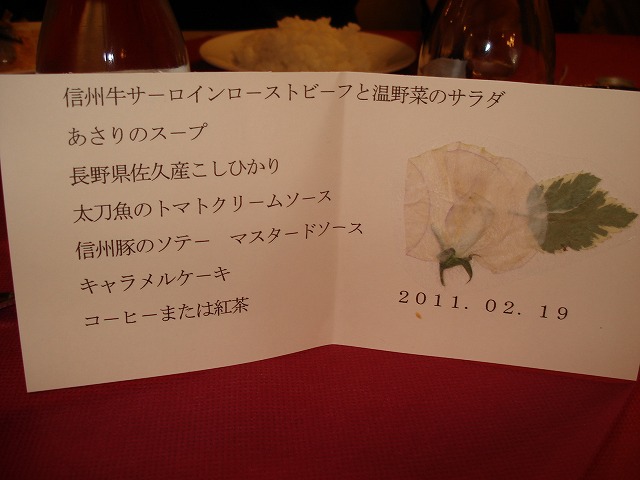 信州牛サーロインローストビーフと温野菜のサラダ
あさりのスープ
長野県佐久産こしひかり
太刀魚のトマトクリームソース
信州豚のソテー　マスタードソース
キャラメルケーキ
コーヒーまたは紅茶
２０１１．０２．１９